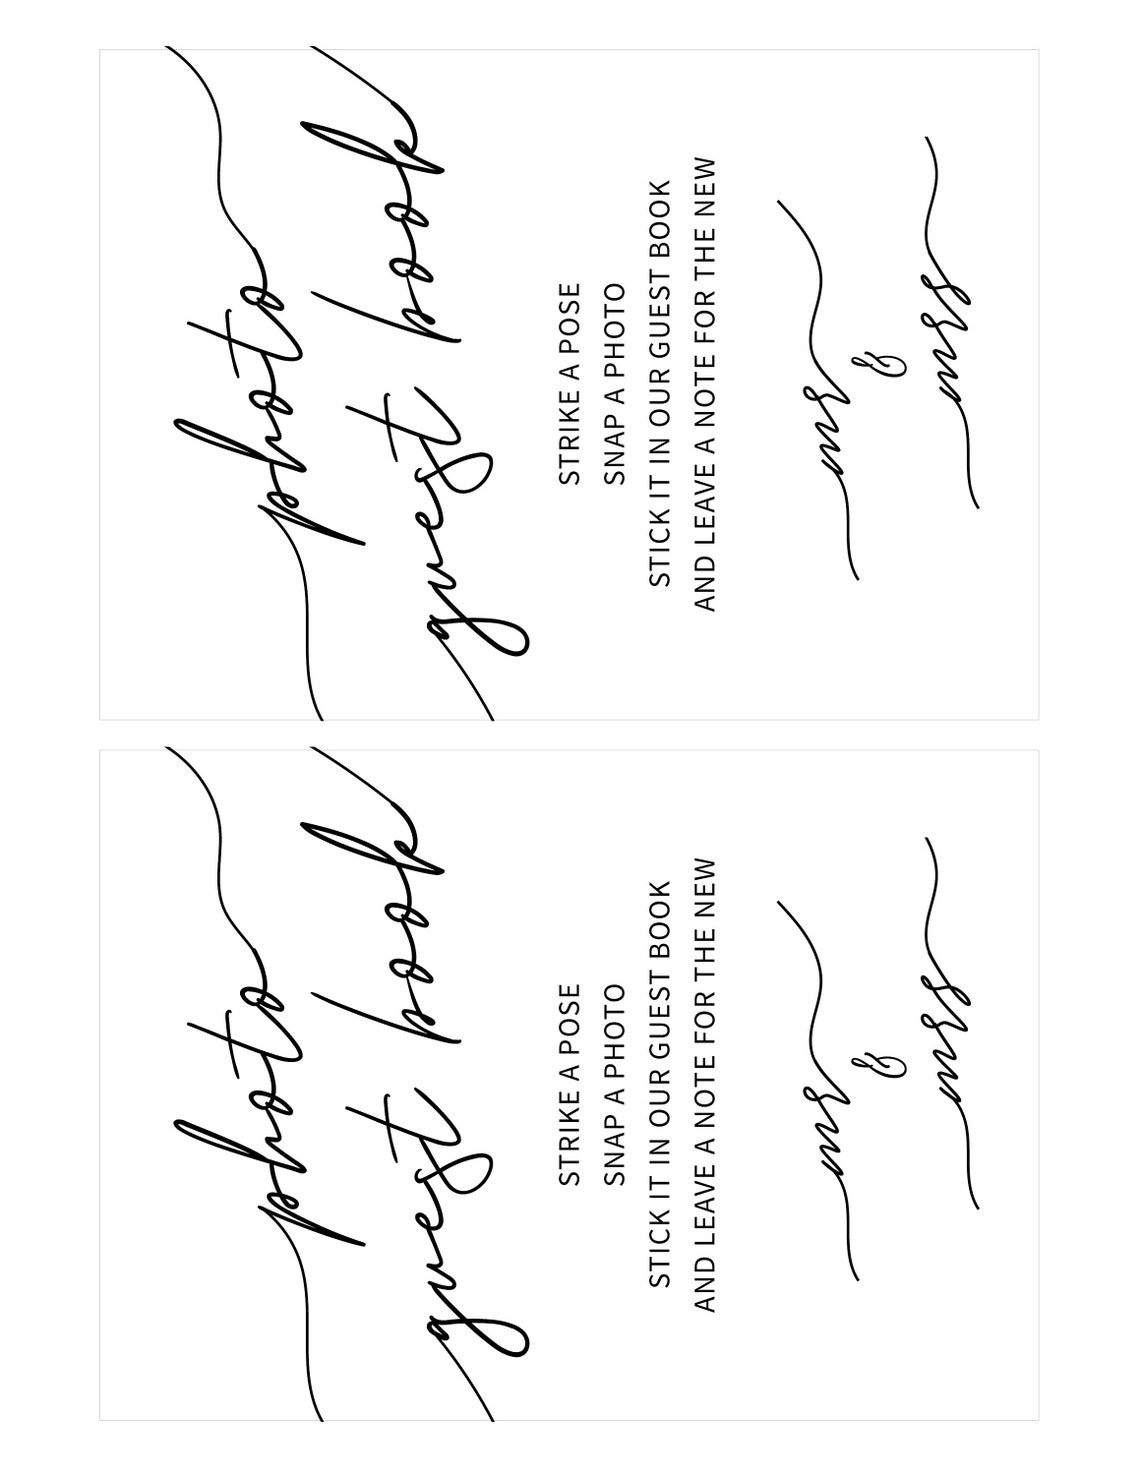 photo
guest book
STRIKE A POSE
SNAP A PHOTO
STICK IT IN OUR GUEST BOOK
AND LEAVE A NOTE FOR THE NEW
mr
&
mrs
photo
guest book
STRIKE A POSE
SNAP A PHOTO
STICK IT IN OUR GUEST BOOK
AND LEAVE A NOTE FOR THE NEW
mr
&
mrs